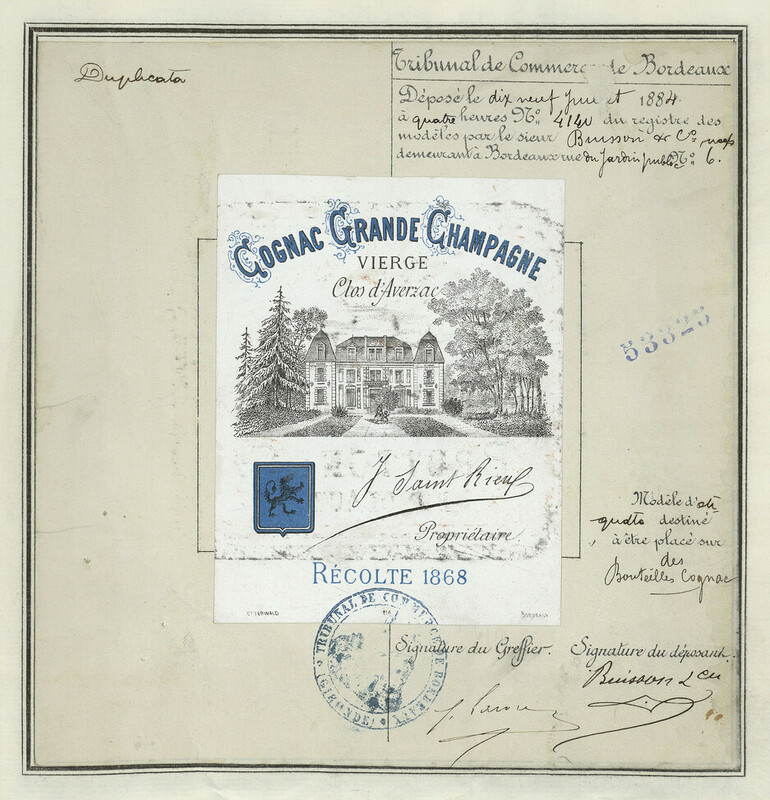 Duplicata
Tribunal de Commerce de Bordeaux
Déposé le dix neuf juillet 1884
à quatre heures No. 4140 du registre des
modèles par le sieur Buisson & Co.
demeurant à Bordeaux rue du Jardin public No. 6.
COGNAC GRANDE CHAMPAGNE
VIERGE
Clos d'Averzac
53325
J. Saint Rieul
Propriétaire
Modèle d'éti
quette destiné
à être placé sur
des
Bouteilles Cognac
RÉCOLTE 1868
BORDEAUX
TRIBUNAL DE COMMERCE DE BORDEAUX
(GIRONDE)
Signature du Greffier. Signature du déposant.
Buisson & Cie